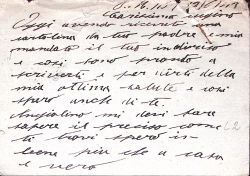 Carissimo cugino
Oggi avendo ricevuto una
cartolina da tuo padre e mia
mandato il tuo indirizzo
e così sono pronto a
scriverti e per dirti della
mia ottima salute e così
spero anche di te.
Angiolino mi devi fare
sapere il preciso come
ti trovi spero
bene più che a casa
e vero